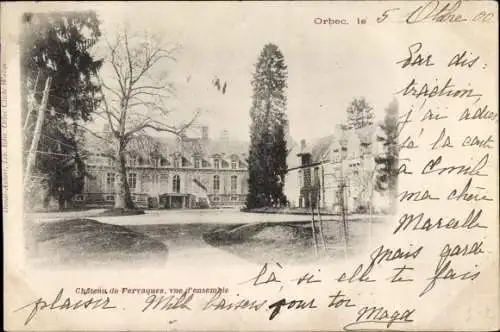 Orbec, le 5 Octbre 00
Par dis-
traction
j'ai adres
sé la carte
à Comble
ma chère
Marcelle
mais garde
là si elle te fais
plaisir Mille baisers pour toi Magda
Château de Fervaques, vue d'ensemble